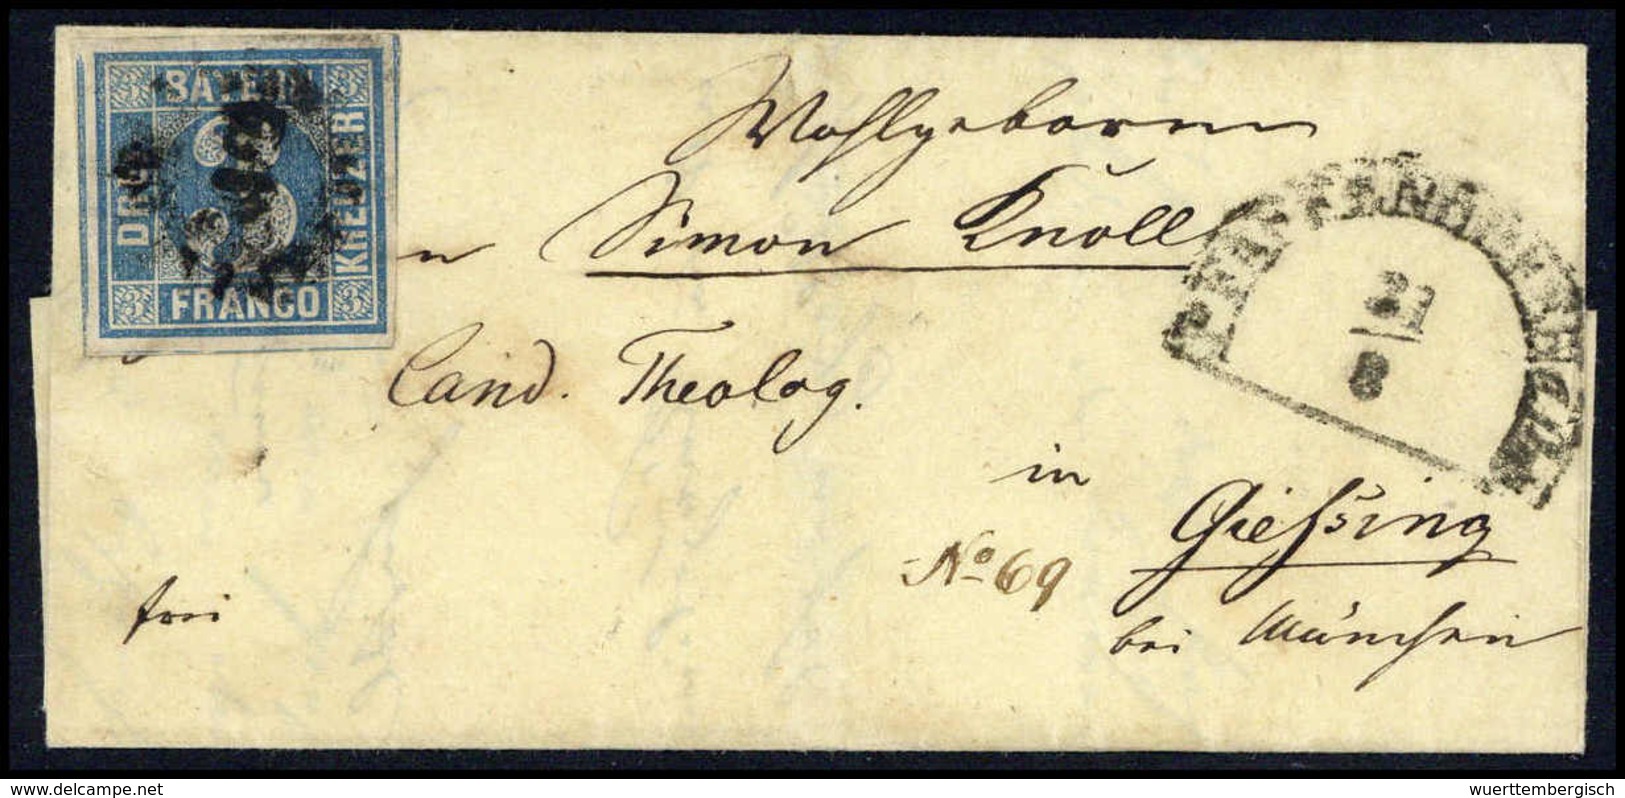 BAYERN
DREI
KREUZER
FRANCO
3
3
3
3
Wohlgeboren
n Simon Knoll
Cand. Theolog.
in
Giessing
No 69
bei München
frei
PFAFFENHOFEN
21
8
delcampe.net
wuerttembergisch